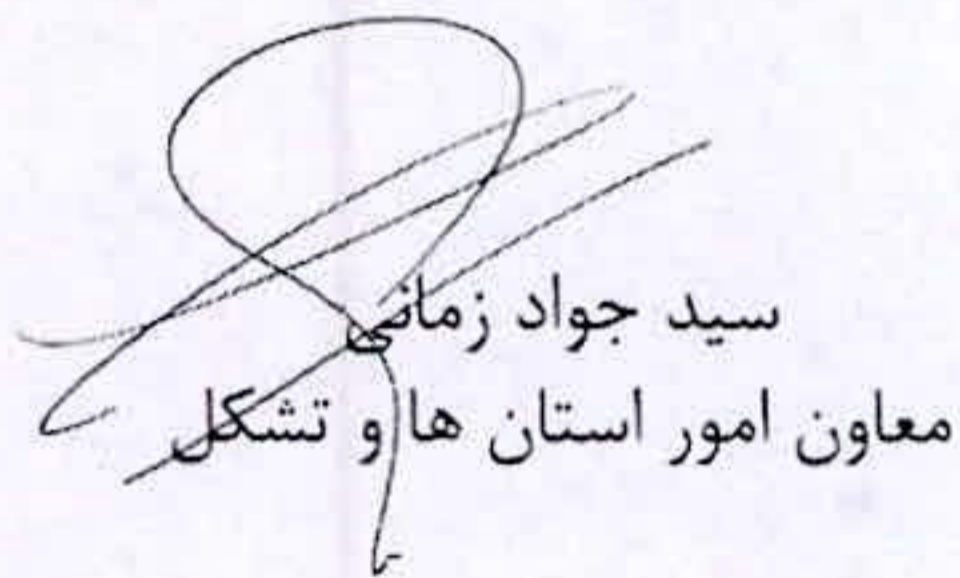 سید جواد زمانی
معاون امور استان ها و تشکل